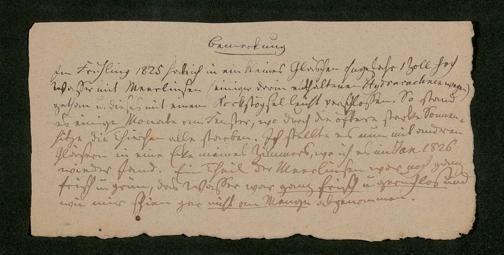 Bemerkung
Im Frühling 1825 hab ich in ein kleines Gläschen ungefehr 1 Zoll hoch
Wasser mit Meerlinsen (einiger darin enthaltener Hydrarachnen wegen)
gethan u. dieses mit einem Korkstöpsel leicht verschlossen. So stand
es einige Monate am Fenster, wo durch die öftere starke Sonnen-
hitze die Thierchen alle starben. Ich stellte es nun mit anderen
Gläsern in eine Ecke meines Zimmers, wo ich es im Jan. 1826
wieder fand. Ein Theil der Meerlinsen war noch ganz
frisch u. grün, das Wasser war ganz frisch u. geruchlos und
wie mir schien gar nicht an Menge abgenommen.